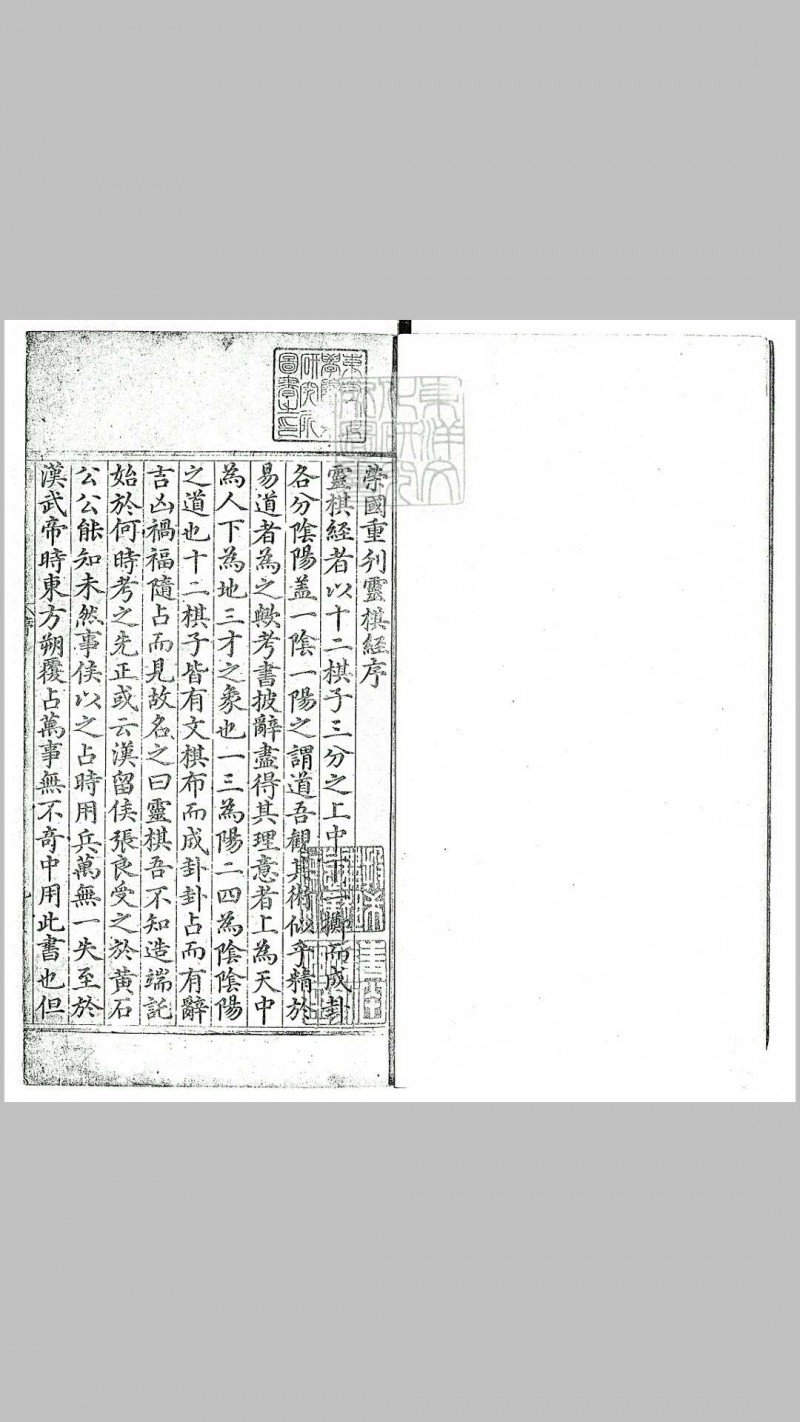 崇國重刋靈棋經序
靈棋經者以十二棋子三分之上中下一擲而成卦
各分陰陽盖一陰一陽之謂道吾觀其術似乎精於
易道者為之歟考書披辭盡得其理意者上為天中
為人下為地三才之象也一三為陽二四為陰陰陽
之道也十二棋子皆有文棋布而成卦卦占而有辭
吉凶禍福隨占而見故名之曰靈棋吾不知造端託
始於何時考之先正或云漢留侯張良受之於黄石
公公能知未然事侯以之占時用兵萬無一失至於
漢武帝時東方朔覆占萬事無不奇中用此書也但